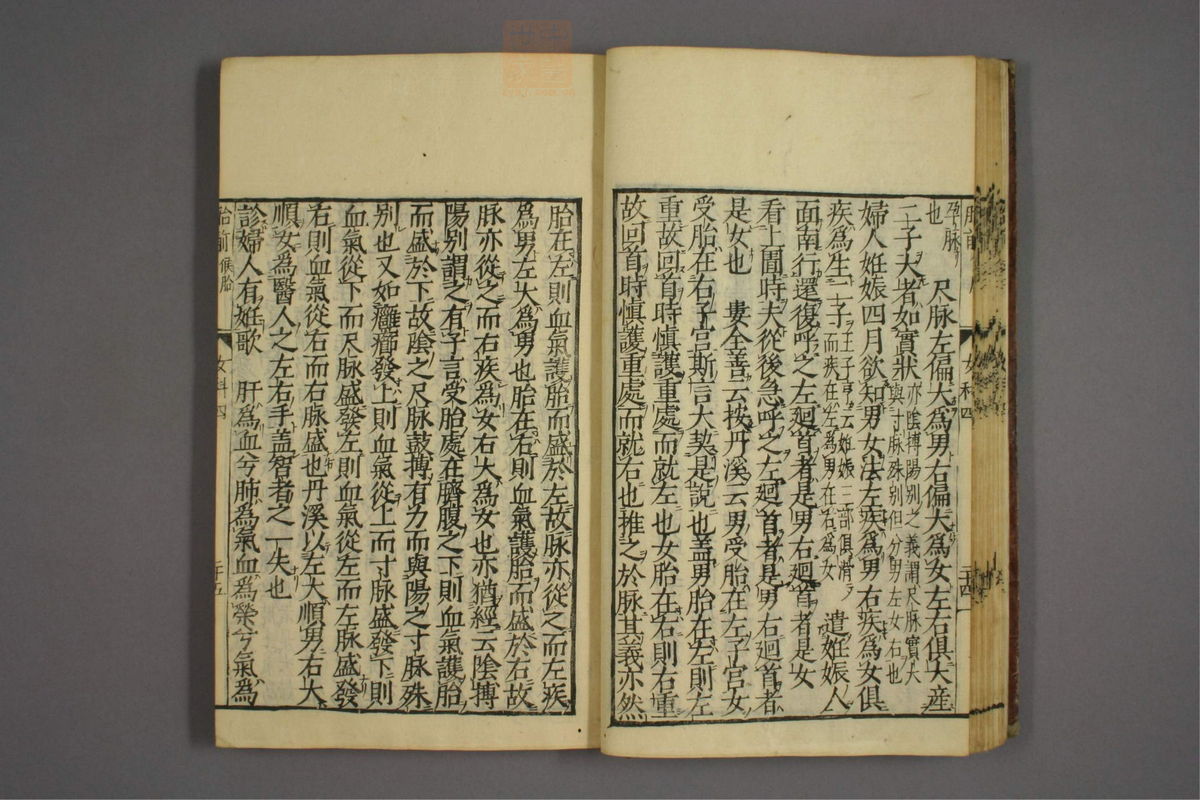 孕脉
也　尺脉左偏大為男右偏大為女左右俱大産
二子大者如實狀亦陰摶陽別之義謂尺脉實大
與寸脉殊別但分男左女右也
婦人妊娠四月欲知男女法左疾為男右疾為女俱
疾為生二子王子亨云妊娠三部俱滑
而疾在左為男在右為女　遣妊娠人
面南行還復呼之左廻首者是男右廻首者是女
看上圊時夫從後急呼之左廻首者是男右廻首者
是女也　婁全善云按丹溪云男受胎在左子宫女
受胎在右子宫斯言大契是說也盖男胎在左則左
重故回首時慎護重處而就左也女胎在右則右重
故回首時慎護重處而就右也推之於脉其義亦然
胎前
女科四
二十四
胎在左則血氣護胎而盛於左故脉亦從之而左疾
為男左大為男也胎在右則血氣護胎而盛於右故
脉亦從之而右疾為女右大為女也亦猶經云陰摶
陽別謂之有子言受胎處在臍腹之下則血氣護胎
而盛於下故陰之尺脉鼓摶有力而與陽之寸脉殊
別也又如癰癤發上則血氣從上而寸脉盛發下則
血氣從下而尺脉盛發左則血氣從左而左脉盛發
右則血氣從右而右脉盛也丹溪以左大順男右大
順女為醫人之左右手盖智者之一失也
診婦人有妊歌　肝為血兮肺為氣血為榮兮氣為
胎前候胎
女科四
二十五